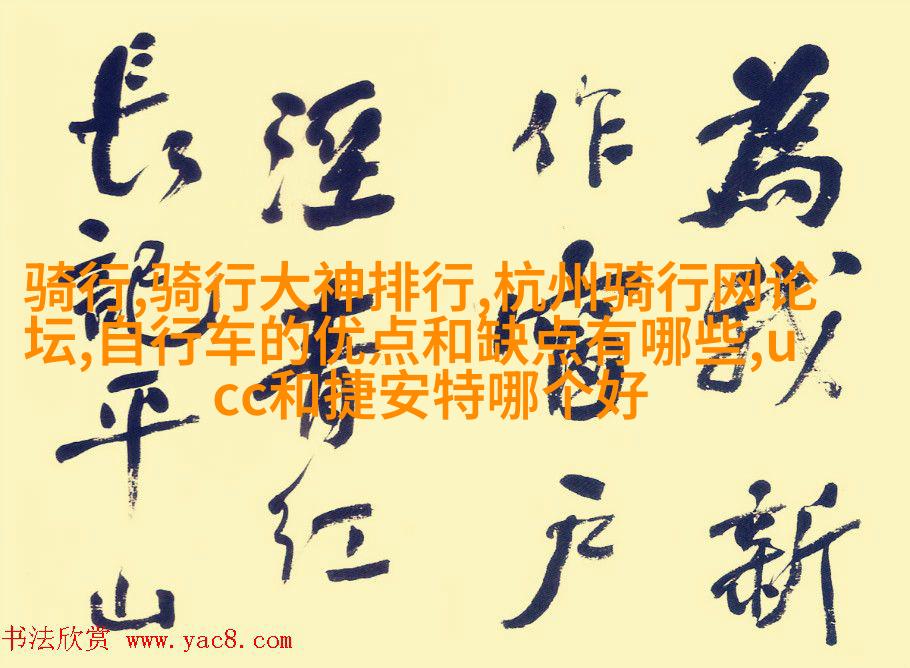 為我新
作窗户
溼青红
長記平山
骑行,骑行大神排行,杭州骑行网论
坛,自行车的优点和缺点有哪些,u
cc和捷安特哪个好
书法欣赏 www.yac8.com